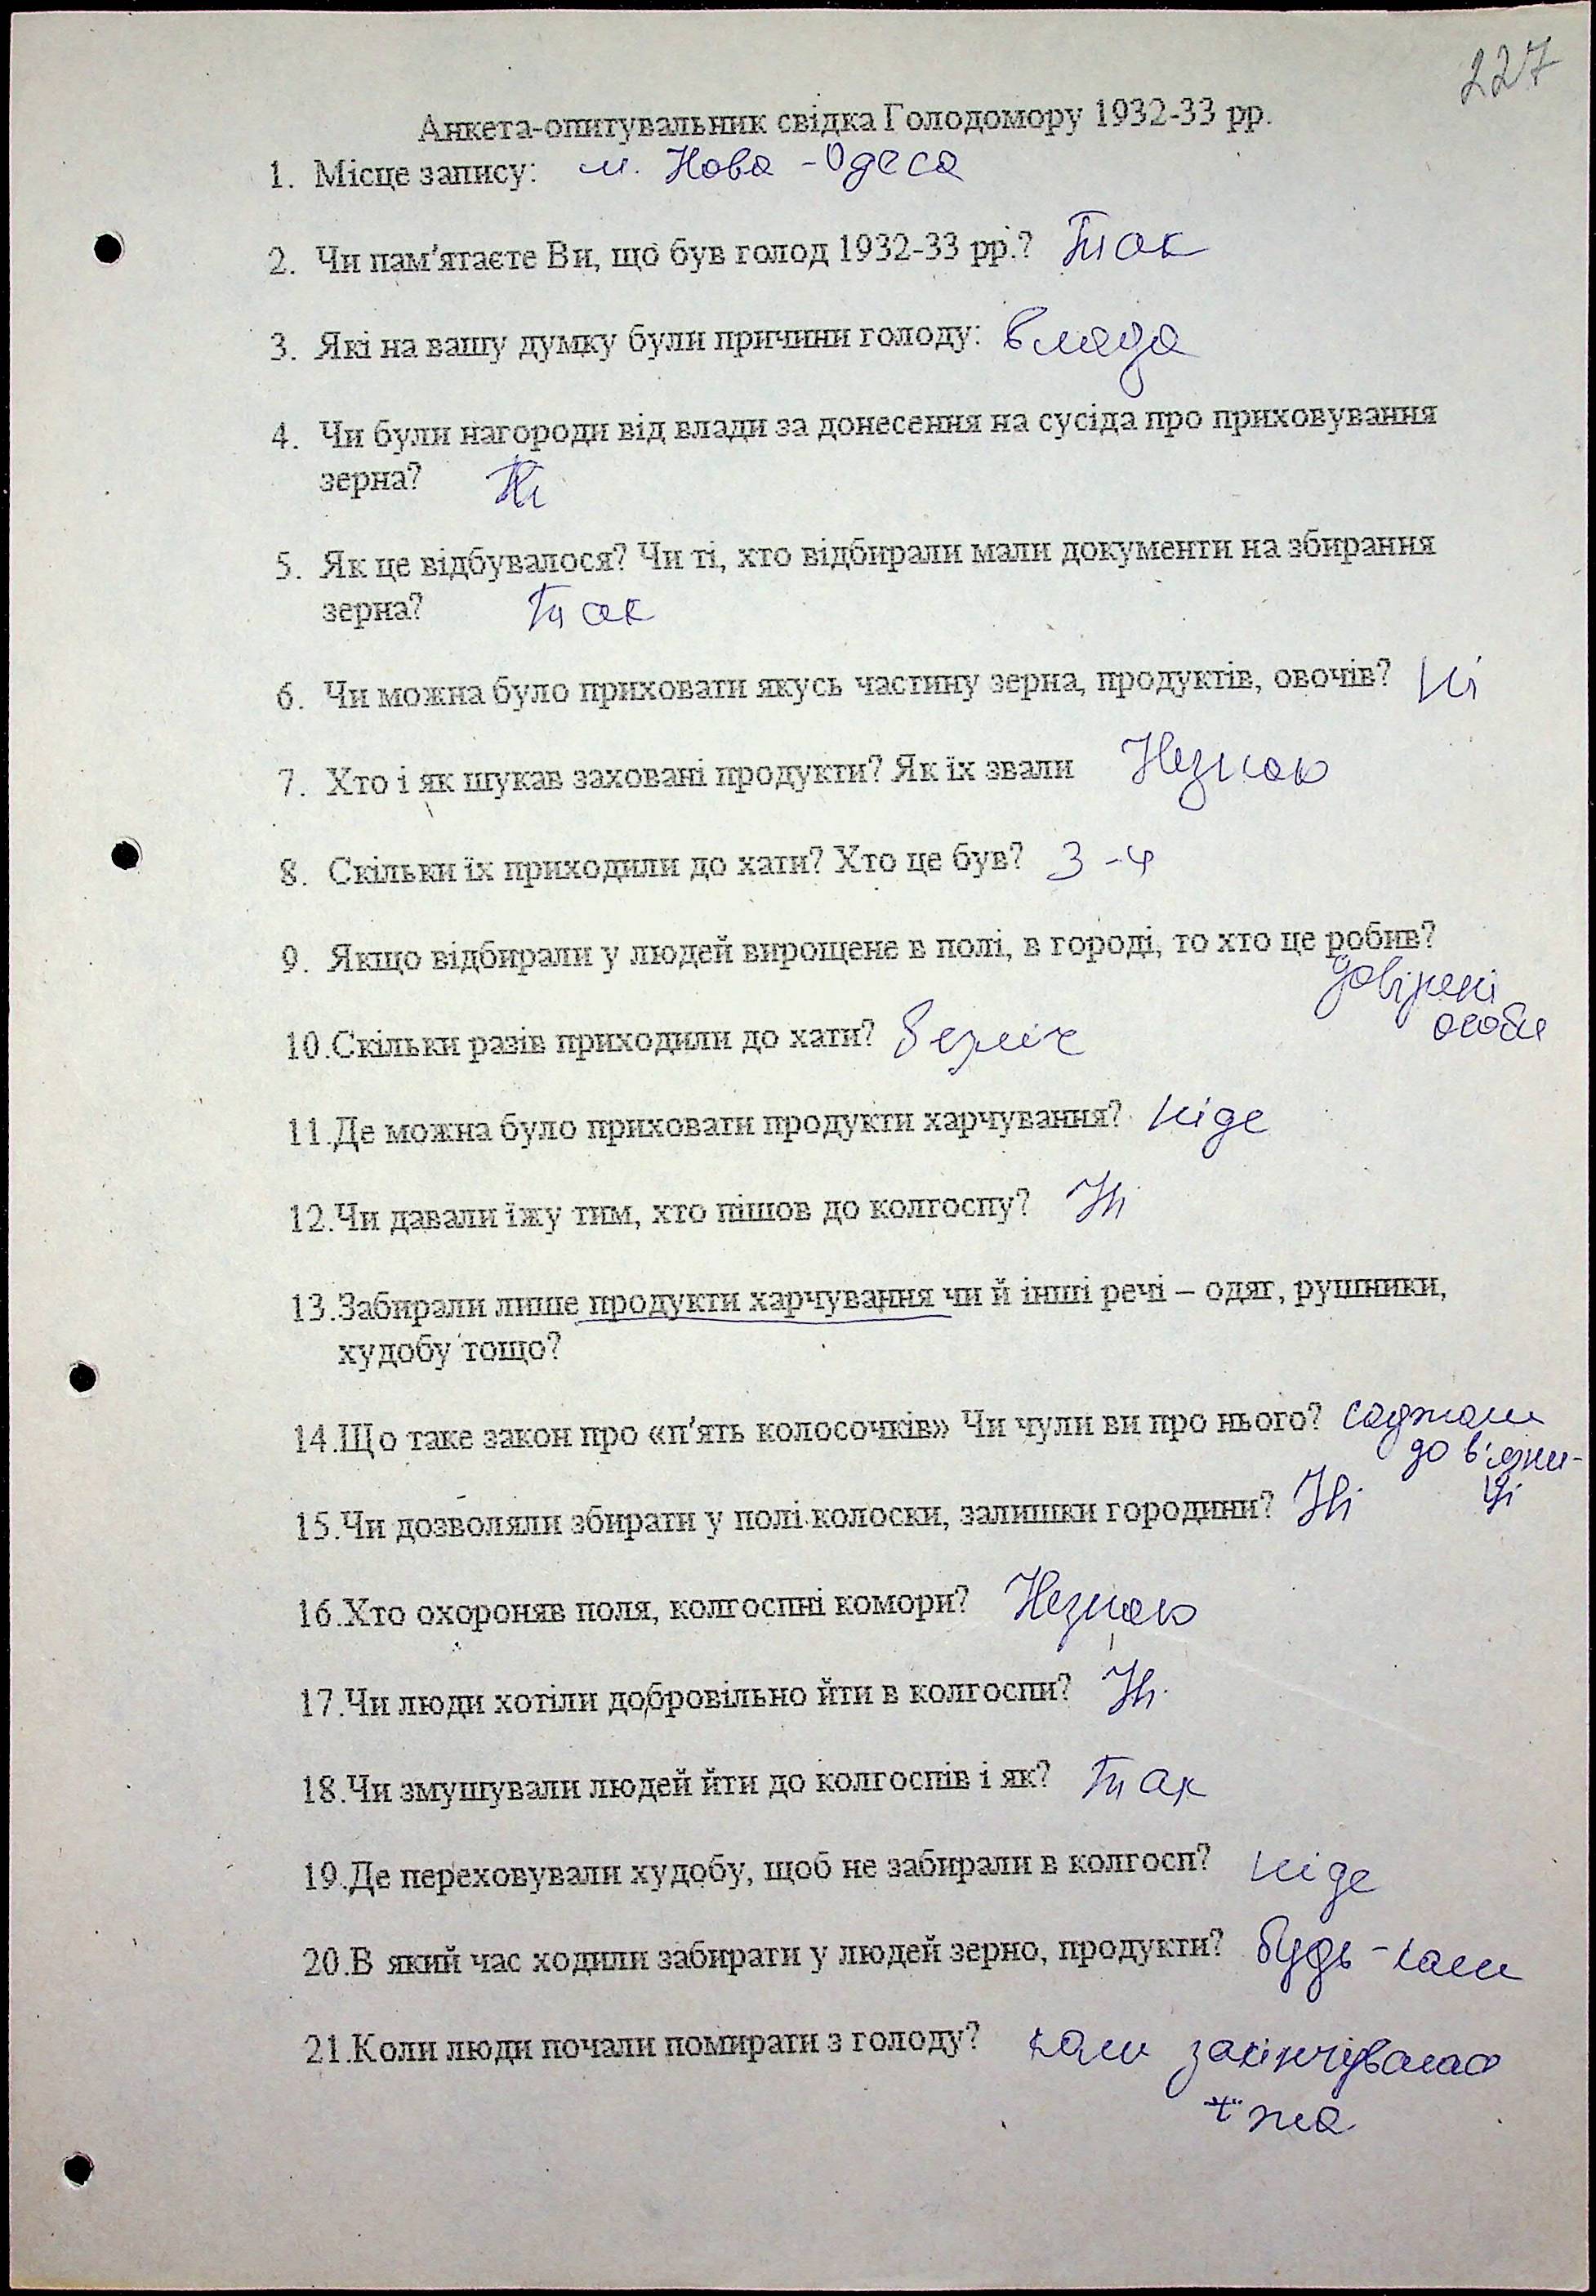 227
Анкета-опитувальник свідка Голодомору 1932-33 рр.
1. Місце запису: м. Нова-Одеса
2. Чи пам'ятаєте Ви, що був голод 1932-33 рр.? Так
3. Які на вашу думку були причини голоду: влада
4. Чи були нагороди від влади за донесення на сусіда про приховування
зерна? Ні
5. Як це відбувалося? Чи ті, хто відбирали мали документи на збирання
зерна? Так
6. Чи можна було приховати якусь частину зерна, продуктів, овочів? Ні
7. Хто і як шукав заховані продукти? Як їх звали Незнаю
8. Скільки їх приходили до хати? Хто це був? 3-4
9. Якщо відбирали у людей вирощене в полі, в городі, то хто це робив?
довірені
особи
10.Скільки разів приходили до хати? безліч
11.Де можна було приховати продукти харчування? ніде
12.Чи давали їжу тим, хто пішов до колгоспу? Ні
13.Забирали лише продукти харчування чи й інші речі – одяг, рушники,
худобу тощо?
14.Що таке закон про «п'ять колосочків» Чи чули ви про нього? саджали
до в'язни-
ці
15.Чи дозволяли збирати у полі колоски, залишки городини? Ні
16.Хто охороняв поля, колгоспні комори? Незнаю
17.Чи люди хотіли добровільно йти в колгоспи? Ні
18.Чи змушували людей йти до колгоспів і як? Так
19.Де переховували худобу, щоб не забирали в колгосп? ніде
20.В який час ходили забирати у людей зерно, продукти? будь-коли
21.Коли люди почали помирати з голоду? коли закінчувалась
їжа